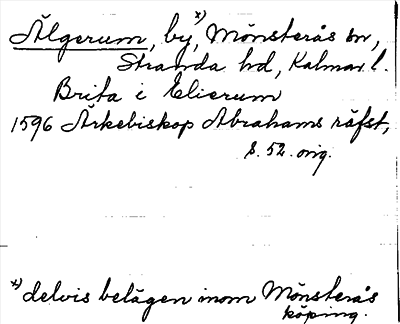 Älgerum, by,ˣ⁾ Mönsterås sn,
Stranda hd, Kalmar l.
Brita i Elierum
1596 Ärkebiskop Abrahams räfst,
s. 52. orig.
ˣ⁾ delvis belägen inom Mönsterås
köping.